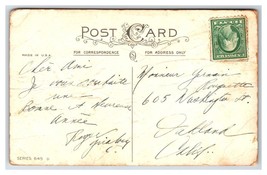 POST CARD
MADE IN U.S.A.
FOR CORRESPONDENCE
FOR ADDRESS ONLY
Cher Ami
Je vous souhaite
une
Bonne et Heureuse
Année
Roger
Monsieur
605 Washington St
Oakland
Calif.